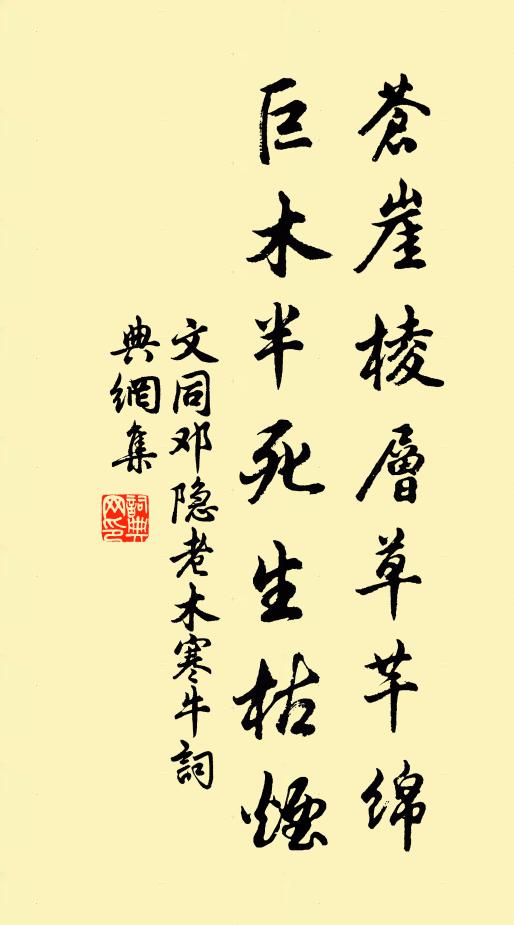 蒼崖棱層草芊绵
巨木半死生枯煙
文同邓隐老木寒牛詞
典網集
詞典网印